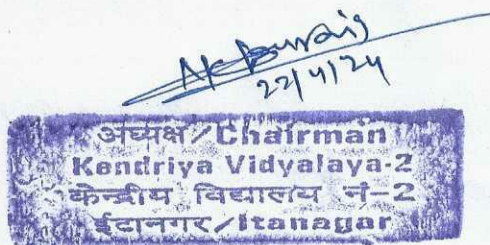 22/4/24
अध्यक्ष/Chairman
Kendriya Vidyalaya-2
केन्द्रीय विद्यालय नं-2
ईटानगर/Itanagar